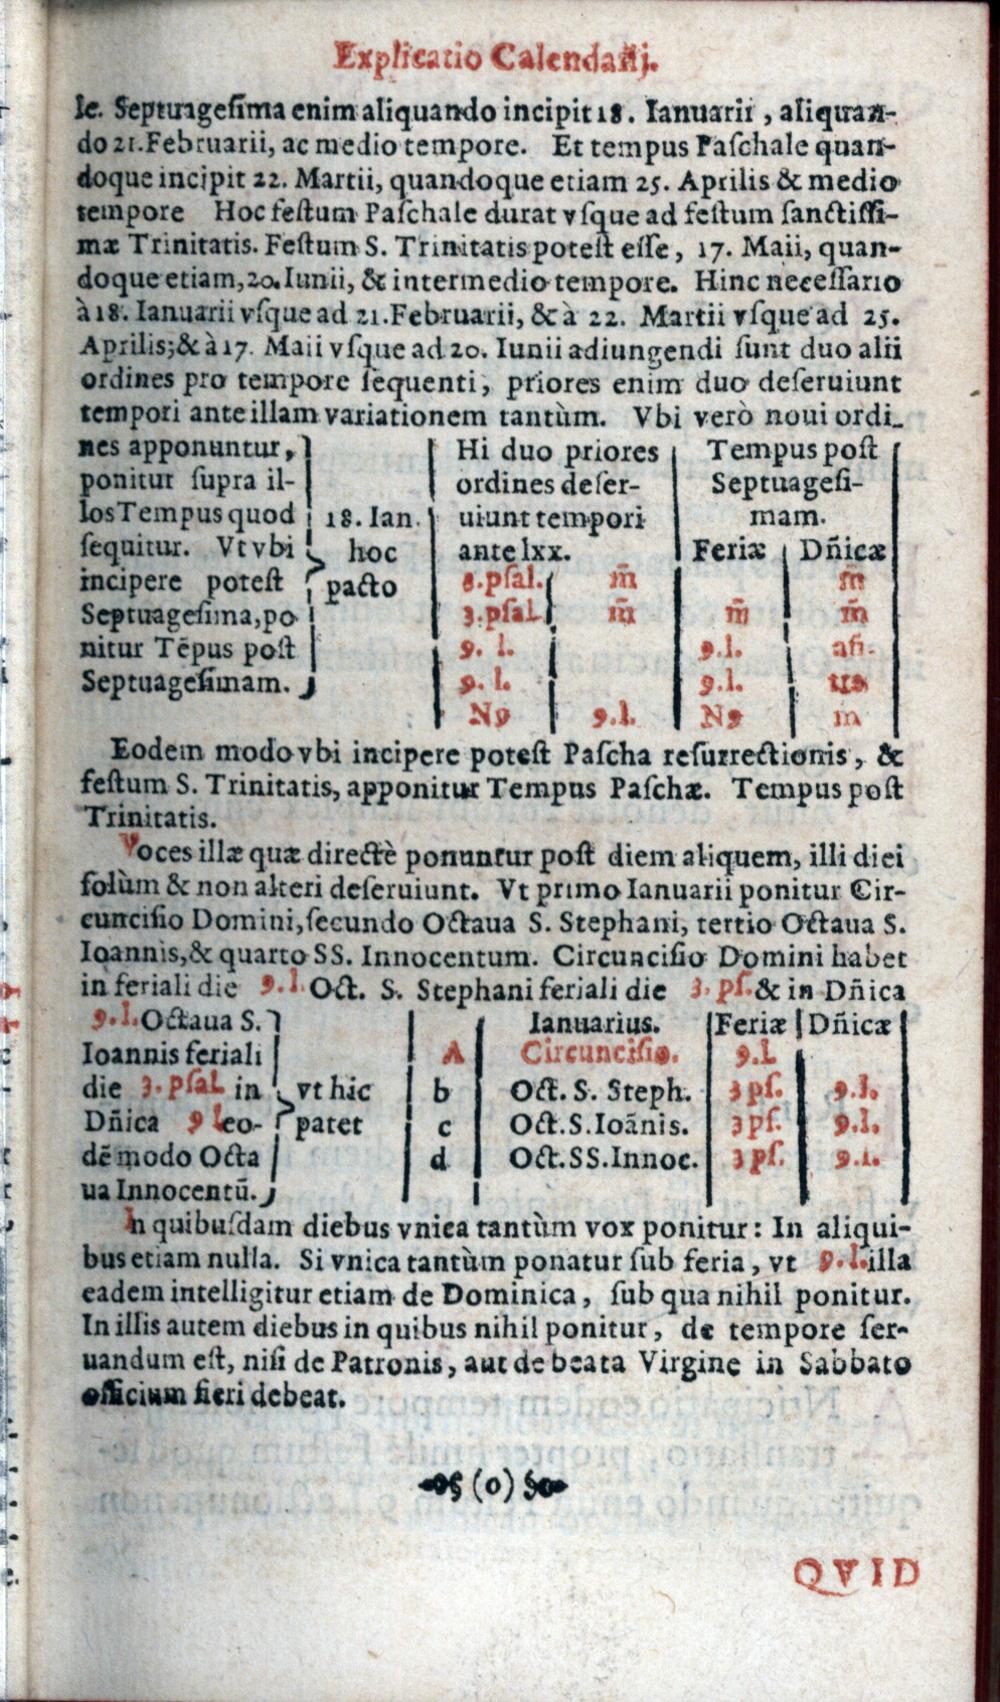 Explicatio Calendarij.
le. Septuagesima enim aliquando incipit 18. Ianuarii, aliquan-
do 21. Februarii, ac medio tempore. Et tempus Paschale quan-
doque incipit 22. Martii, quandoque etiam 25. Aprilis & medio
tempore Hoc festum Paschale durat vsque ad festum sanctissi-
mæ Trinitatis. Festum S. Trinitatis potest esse, 17. Maii, quan-
doque etiam, 20. Iunii, & intermedio tempore. Hinc necessario
à 18. Ianuarii vsque ad 21. Februarii, & à 22. Martii vsque ad 25.
Aprilis; & à 17. Maii vsque ad 20. Iunii adiungendi sunt duo alii
ordines pro tempore sequenti, priores enim duo deseruiunt
tempori ante illam variationem tantùm. Vbi verò noui ordi-
nes apponuntur,
ponitur supra il-
los Tempus quod
sequitur. Vt vbi
incipere potest
Septuagesima, po
nitur Tēpus post
Septuagesimam.
18. Ian.
hoc
pacto
Hi duo priores
ordines deser-
uiunt tempori
ante lxx.
Tempus post
Septuagesi-
mam.
Feriæ Dñicæ
8. psal. m̄ m̄
3. psal. m̄ m̄ m̄
9. l. 9. l. añ.
9. l. 9. l.
N9 9. l. N9 m
Eodem modo vbi incipere potest Pascha resurrectionis, &
festum S. Trinitatis, apponitur Tempus Paschæ. Tempus post
Trinitatis.
Voces illæ quæ directè ponuntur post diem aliquem, illi diei
solùm & non alteri deseruiunt. Vt primo Ianuarii ponitur Cir-
cuncisio Domini, secundo Octaua S. Stephani, tertio Octaua S.
Ioannis, & quarto SS. Innocentum. Circuncisio Domini habet
in feriali die 9. l. Oct. S. Stephani feriali die 3. ps. & in Dñica
9. l. Octaua S.
Ioannis feriali
die 3. psal. in
Dñica 9 l eo-
dē modo Octa
ua Innocentū.
vt hic
patet
Ianuarius. Feriæ Dñicæ
A Circuncisio. 9. l
b Oct. S. Steph. 3 ps. 9. l.
c Oct. S. Ioānis. 3 ps. 9. l.
d Oct. SS. Innoc. 3 ps. 9. l.
In quibusdam diebus vnica tantùm vox ponitur: In aliqui-
bus etiam nulla. Si vnica tantùm ponatur sub feria, vt 9. l. illa
eadem intelligitur etiam de Dominica, sub qua nihil ponitur.
In illis autem diebus in quibus nihil ponitur, de tempore ser-
uandum est, nisi de Patronis, aut de beata Virgine in Sabbato
officium fieri debeat.
(0)
QVID